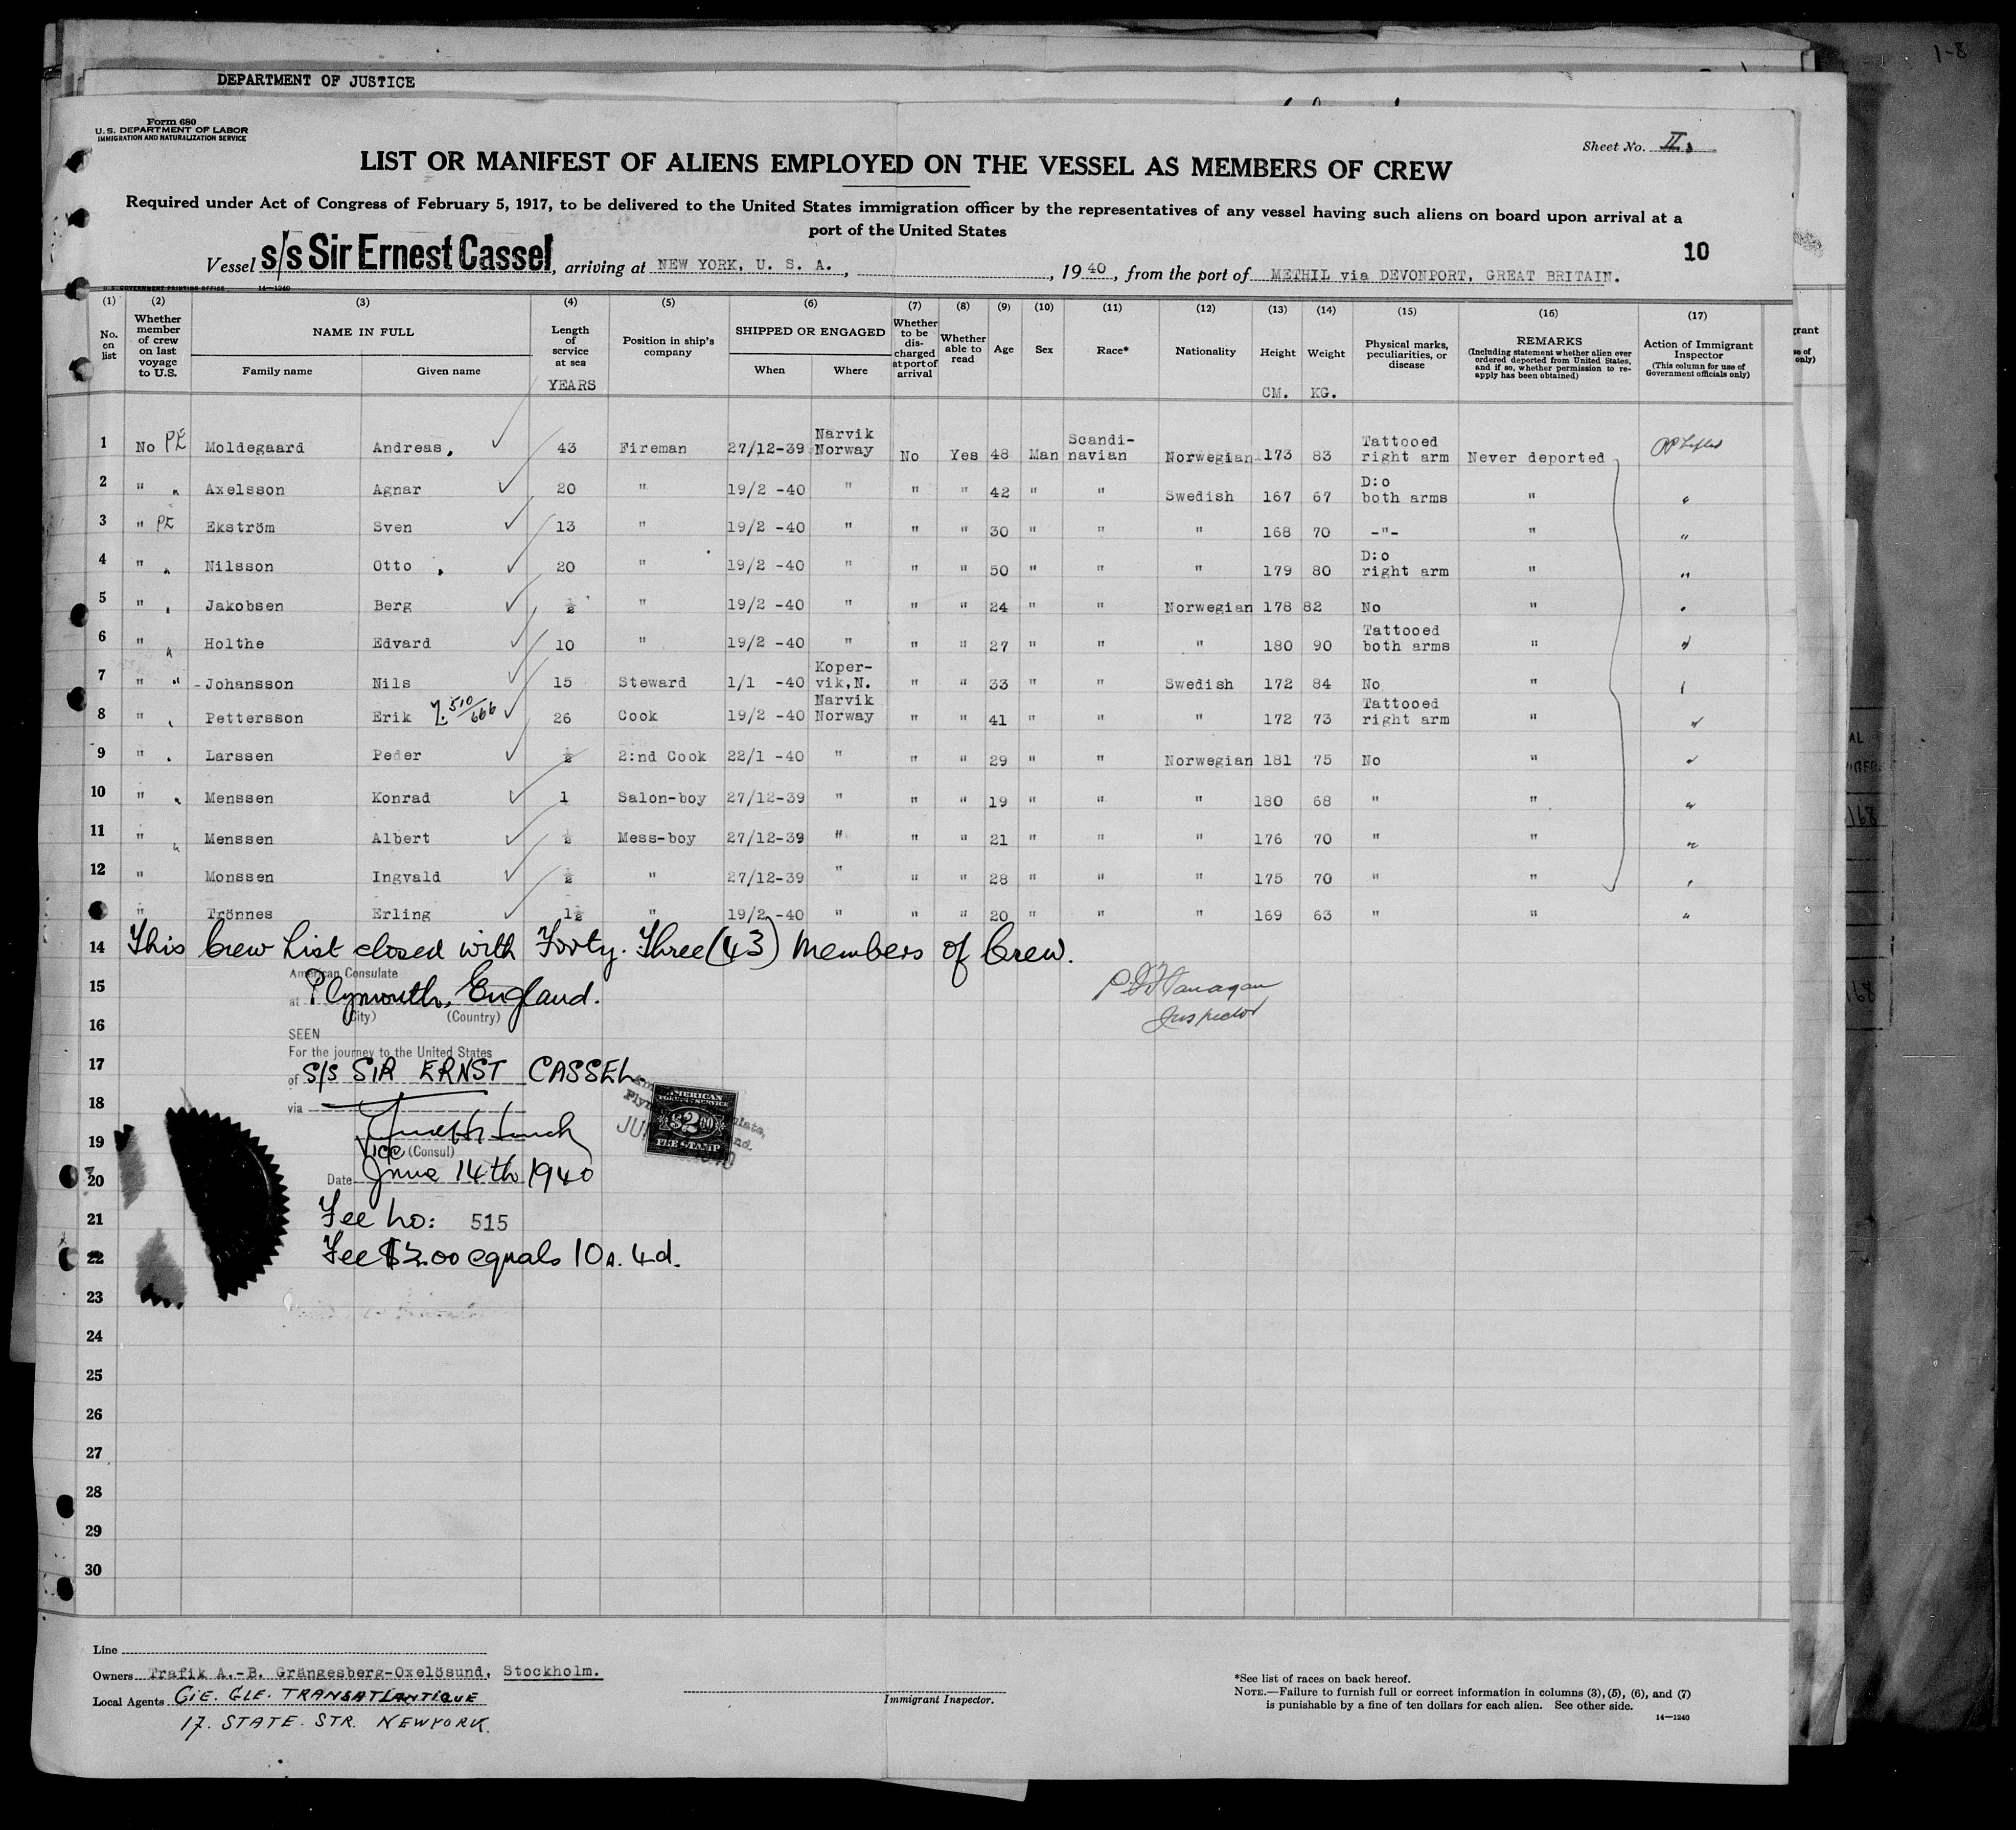 1-8
DEPARTMENT OF JUSTICE
Form 680
U.S. DEPARTMENT OF LABOR
IMMIGRATION AND NATURALIZATION SERVICE
Sheet No. II.
LIST OR MANIFEST OF ALIENS EMPLOYED ON THE VESSEL AS MEMBERS OF CREW
Required under Act of Congress of February 5, 1917, to be delivered to the United States immigration officer by the representatives of any vessel having such aliens on board upon arrival at a
port of the United States
10
Vessel s/s Sir Ernest Cassel, arriving at NEW YORK, U. S. A., , 1940, from the port of METHIL via DEVONPORT, GREAT BRITAIN.
U.S. GOVERNMENT PRINTING OFFICE 14-1240
(1) (2) (3) (4) (5) (6) (7) (8) (9) (10) (11) (12) (13) (14) (15) (16) (17)
No. on list
Whether member of crew on last voyage to U.S.
NAME IN FULL
Family name Given name
Length of service at sea
YEARS
Position in ship's company
SHIPPED OR ENGAGED
When Where
Whether to be discharged at port of arrival
Whether able to read
Age
Sex
Race*
Nationality
Height
CM.
Weight
KG.
Physical marks, peculiarities, or disease
REMARKS
(Including statement whether alien ever ordered deported from United States, and if so, whether permission to reapply has been obtained)
Action of Immigrant Inspector
(This column for use of Government officials only)
1 No PE Moldegaard Andreas. 43 Fireman 27/12-39 Narvik Norway No Yes 48 Man Scandi-navian Norwegian 173 83 Tattooed right arm Never deported
2 " " Axelsson Agnar 20 " 19/2 -40 " " " 42 " " Swedish 167 67 D:o both arms " "
3 " PE Ekström Sven 13 " 19/2 -40 " " " 30 " " " 168 70 -"- " "
4 " " Nilsson Otto 20 " 19/2 -40 " " " 50 " " " 179 80 D:o right arm " "
5 " " Jakobsen Berg ½ " 19/2 -40 " " " 24 " " Norwegian 178 82 No " "
6 " " Holthe Edvard 10 " 19/2 -40 " " " 27 " " " 180 90 Tattooed both arms " "
7 " " -Johansson Nils 15 Steward 1/1 -40 Koper-vik,N. " " 33 " " Swedish 172 84 No " "
8 " " Pettersson Erik 510/666 26 Cook 19/2 -40 Narvik Norway " " 41 " " " 172 73 Tattooed right arm " "
9 " " Larssen Peder ½ 2:nd Cook 22/1 -40 " " " 29 " " Norwegian 181 75 No " "
10 " " Menssen Konrad 1 Salon-boy 27/12-39 " " " 19 " " " 180 68 " " "
11 " " Menssen Albert ½ Mess-boy 27/12-39 " " " 21 " " " 176 70 " " "
12 " Monssen Ingvald ½ " 27/12-39 " " " 28 " " " 175 70 " " "
" Trönnes Erling 1½ " 19/2 -40 " " " 20 " " " 169 63 " " "
14 This Crew List closed with Forty-Three (43) Members of Crew.
American Consulate
15 at Plymouth, England.
(City) (Country)
P. J. Flanagan
Inspector
16 SEEN
For the journey to the United States
17 of S/S SIR ERNST CASSEL
18 via
AMERICAN
FOREIGN SERVICE
$2.00
FEE STAMP
19 Vice (Consul)
20 Date June 14th 1940
21 Fee No: 515
22 Fee $2.00 equals 10s. 4d.
23
24
25
26
27
28
29
30
Line
Owners Trafik A.-B. Grängesberg-Oxelösund, Stockholm.
Local Agents CIE. GLE. TRANSATLANTIQUE
17. STATE. STR. NEWYORK.
Immigrant Inspector.
*See list of races on back hereof.
NOTE.—Failure to furnish full or correct information in columns (3), (5), (6), and (7)
is punishable by a fine of ten dollars for each alien. See other side.
14-1240